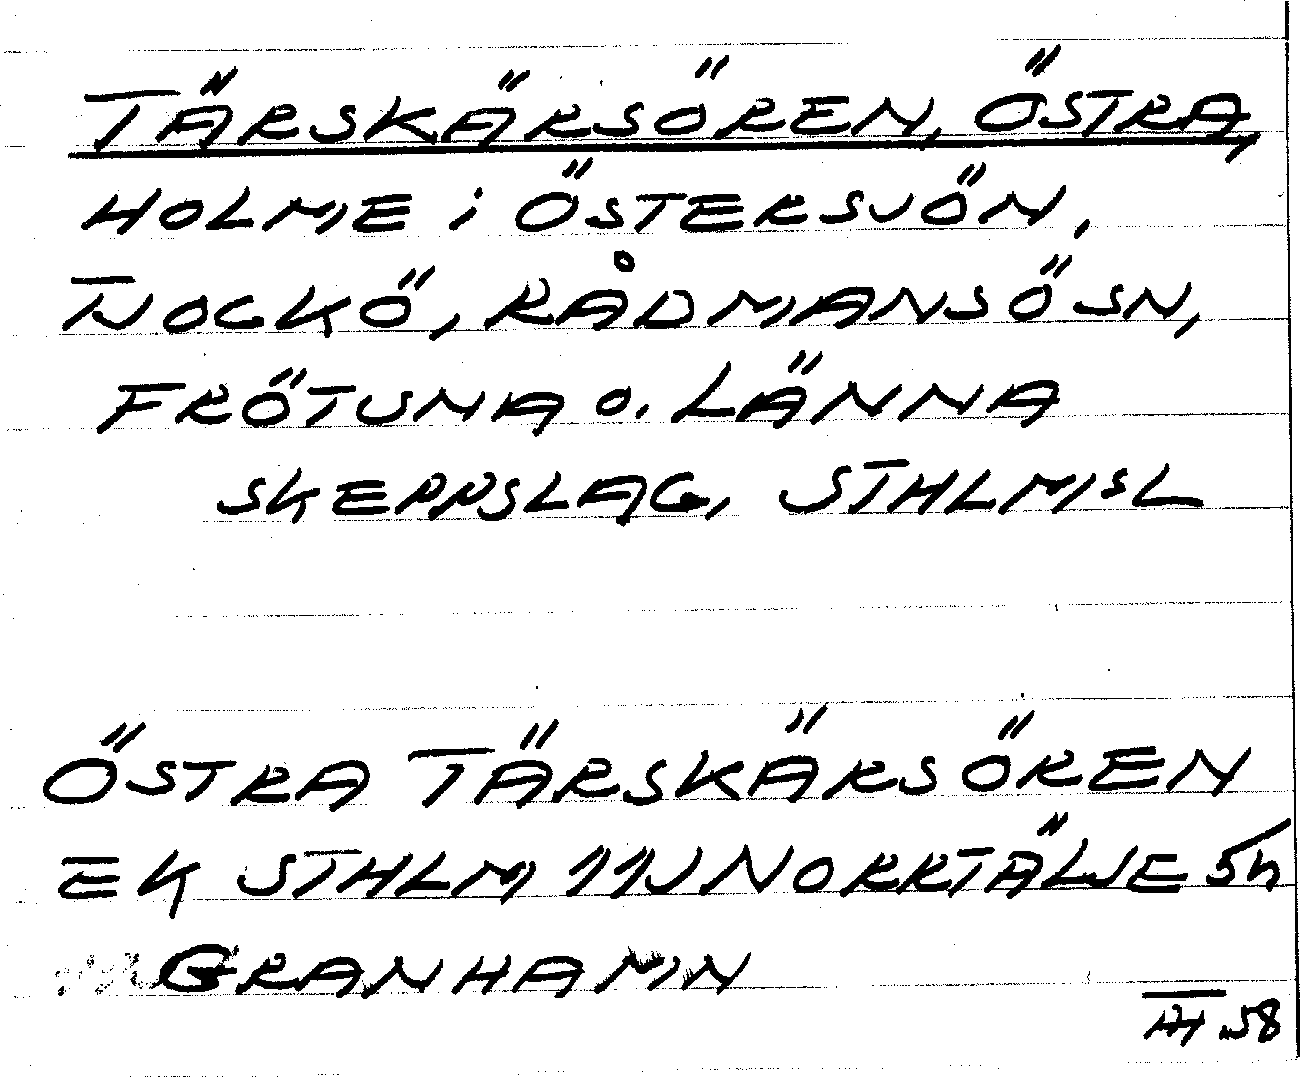 TÄRSKÄRSÖREN, ÖSTRA,
HOLME i ÖSTERSJÖN,
TJOCKÖ, RÅDMANSÖ SN,
FRÖTUNA O. LÄNNA
SKEPPSLAG, STHLMSL
ÖSTRA TÄRSKÄRSÖREN
EK STHLM 11J NORRTÄLJE
GRANHAMN
58